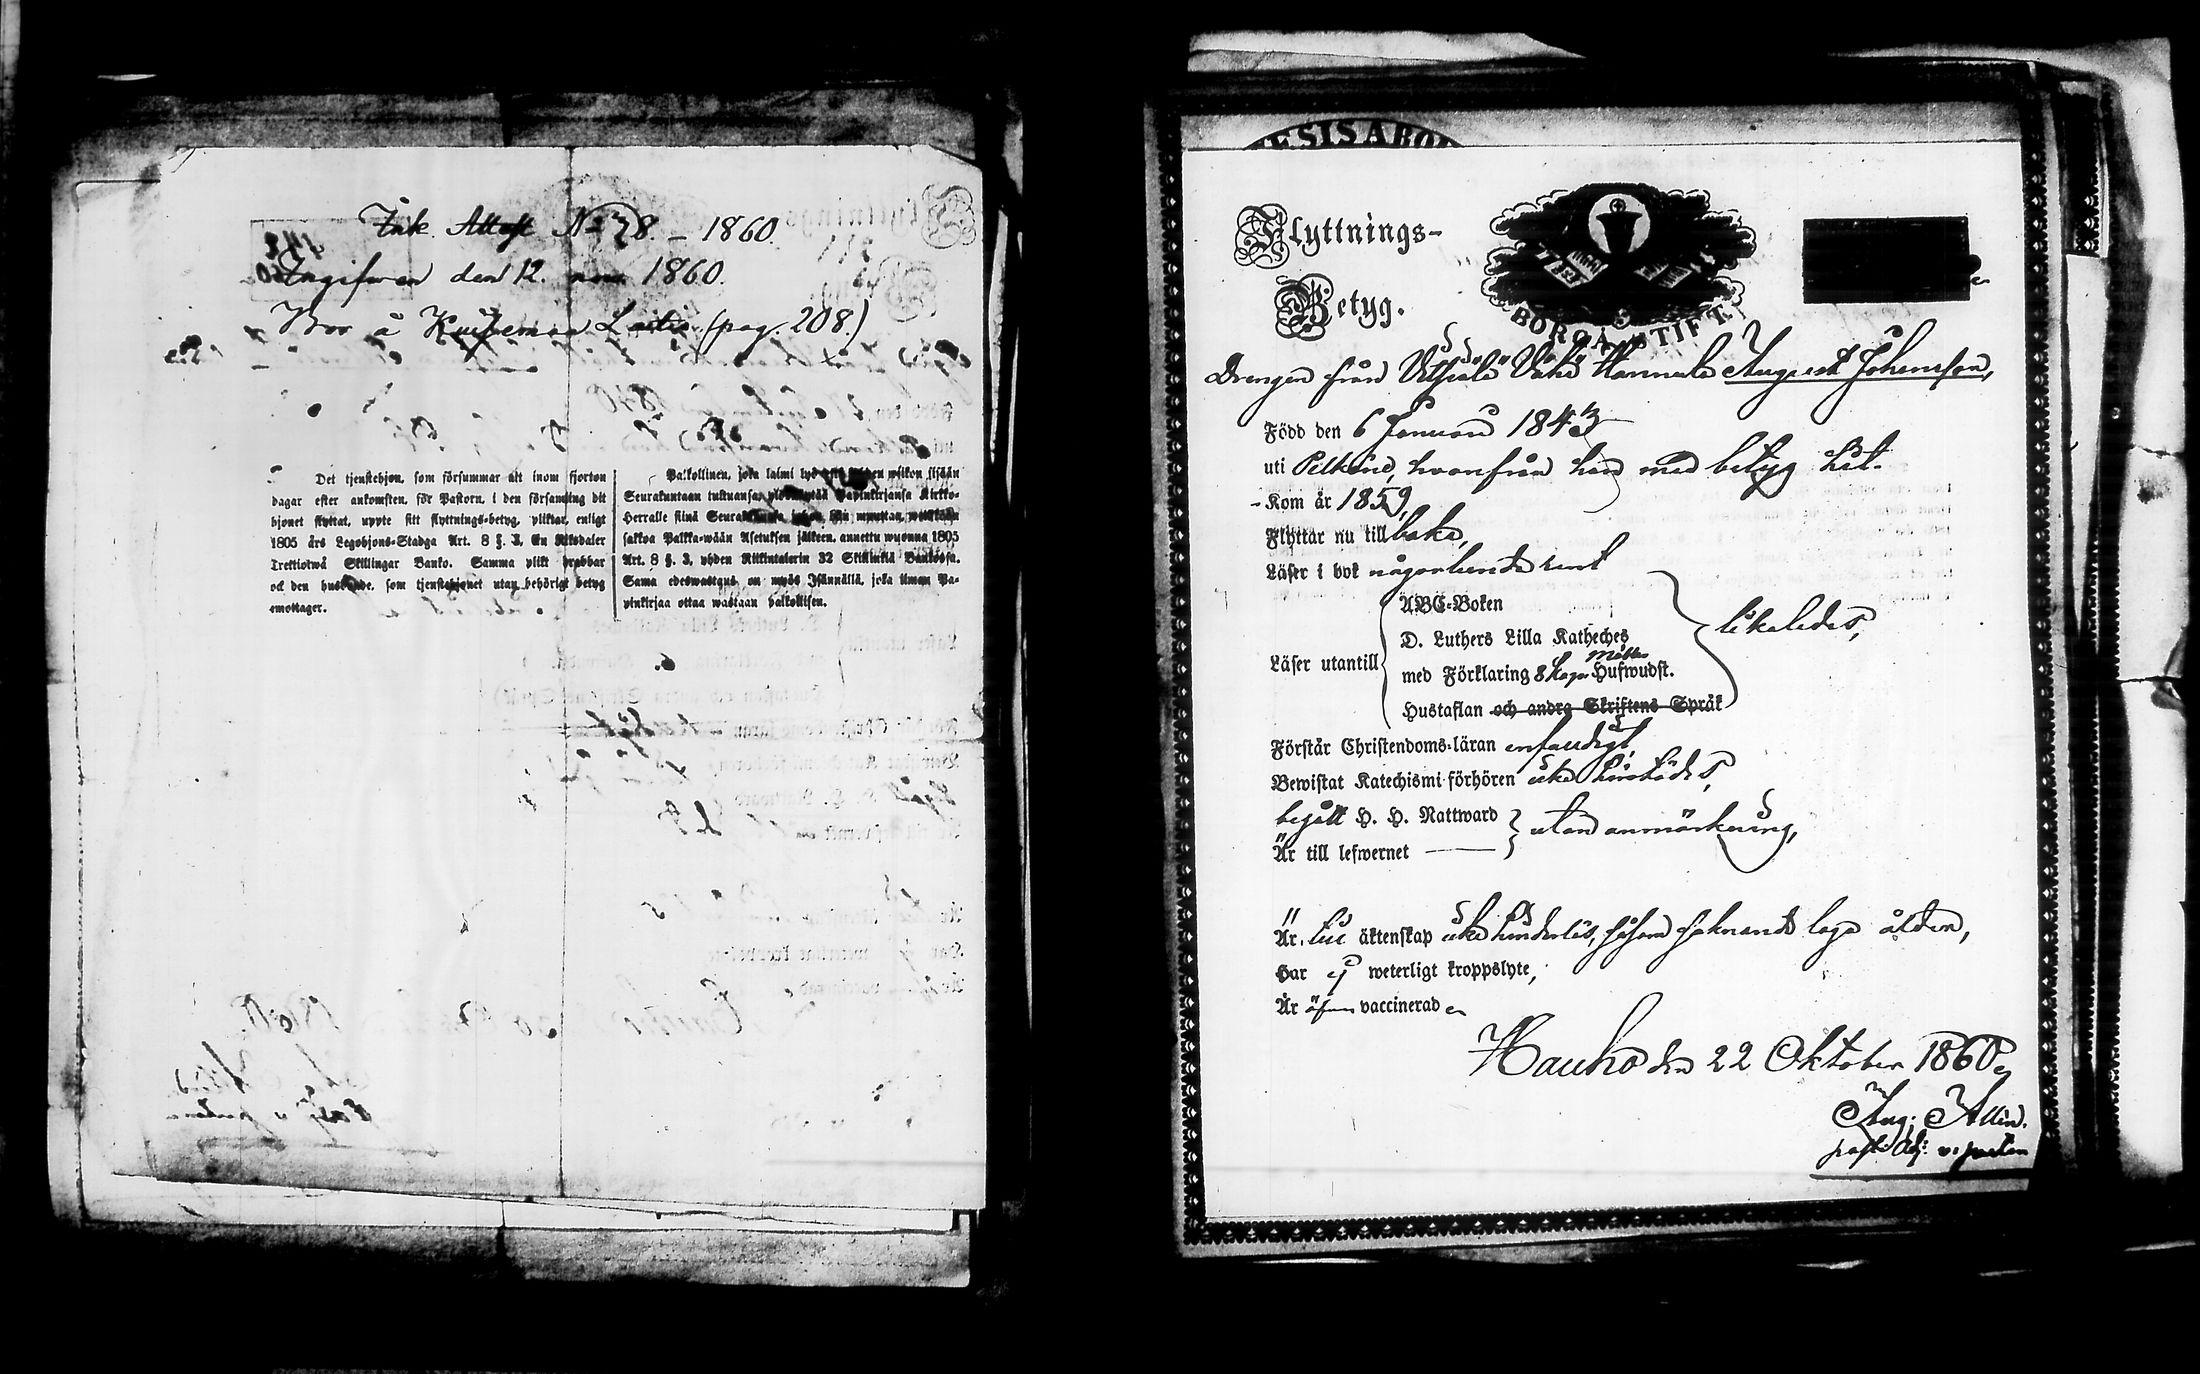 Ink. Attest No 78. – 1860.
Ingifwen den 12. nov. 1860.
Bor å Kuisemaa (pag. 208.)
Det tjenstehjon, som försummar att inom fjorton
dagar efter ankomsten, för Pastorn, i den församling dit
hjonet flyttat, uppte sitt flyttnings-betyg, pliktar, enligt
1805 års Legohjons-Stadga Art. 8 §. 3, En Riksdaler
Trettiotwå Skillingar Banko. Samma plikt drabbar
ock den husbonde, som tjenstehjonet utan behörigt betyg
emottager.
Palkollinen, joka laimi lyö wiikon sisään
Seurakuntaan tultuansa, ylösnäyttää Papinkirjansa Kirkko-
Herralle siinä Seurakunnassa johon hän muuttaa, wetäköön
sakkoa Palkka-wään Asetuksen jälkeen, annettu wuonna 1805
Art. 8 §. 3, yhden Riikintalerin 32 Skillinkiä Bankossa.
Sama edeswastaus on myös Isännällä, joka ilman Pa-
pinkirjaa ottaa wastaan palkollisen.
ESIS ABO
Flyttnings-
Betyg.
BORGÅ STIFT.
Drengen från August Johansson,
Född den 6 Januari 1843
uti Pelkäne, hvarifrån han med betyg hit-
-Kom år 1859,
Flyttar nu till baka,
Läser i bok någorlunda rent
Läser utantill
ABC-Boken
D. Luthers Lilla Katheches
med Förklaring Hufwudst.
Hustaflan och andra Skriftens Språk
likaledes,
Förstår Christendoms-läran enfaldigt,
Bewistat Katechismi förhören icke
begått H. H. Nattward
Är till lefwernet
utan anmärkning,
Är till äktenskap icke hinderlös, såsom saknande laga åldern,
Har ej weterligt kroppslyte,
Är äfven vaccinerad
Hauho den 22 Oktober 1860
Aug. Allén.
past. Adj. v. pastor